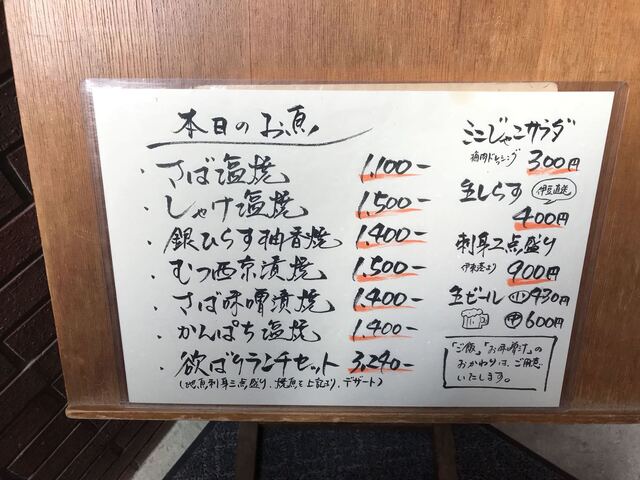 本日のお魚
・さば塩焼 1,100-
・しゃけ塩焼 1,500-
・銀ひらす柚香焼 1,400-
・むつ西京漬焼 1,500-
・さば味噌漬焼 1,400-
・かんぱち塩焼 1,400-
・欲ばりランチセット 3,240-
(地魚刺身三点盛り、焼魚を上記より、デザート)
ミニじゃこサラダ
梅肉ドレッシング 300円
生しらす 伊豆直送
400円
刺身2点盛り
900円
生ビール 小 430円
中 600円
「ご飯」「お味噌汁」の
おかわりは、ご用意
いたします。